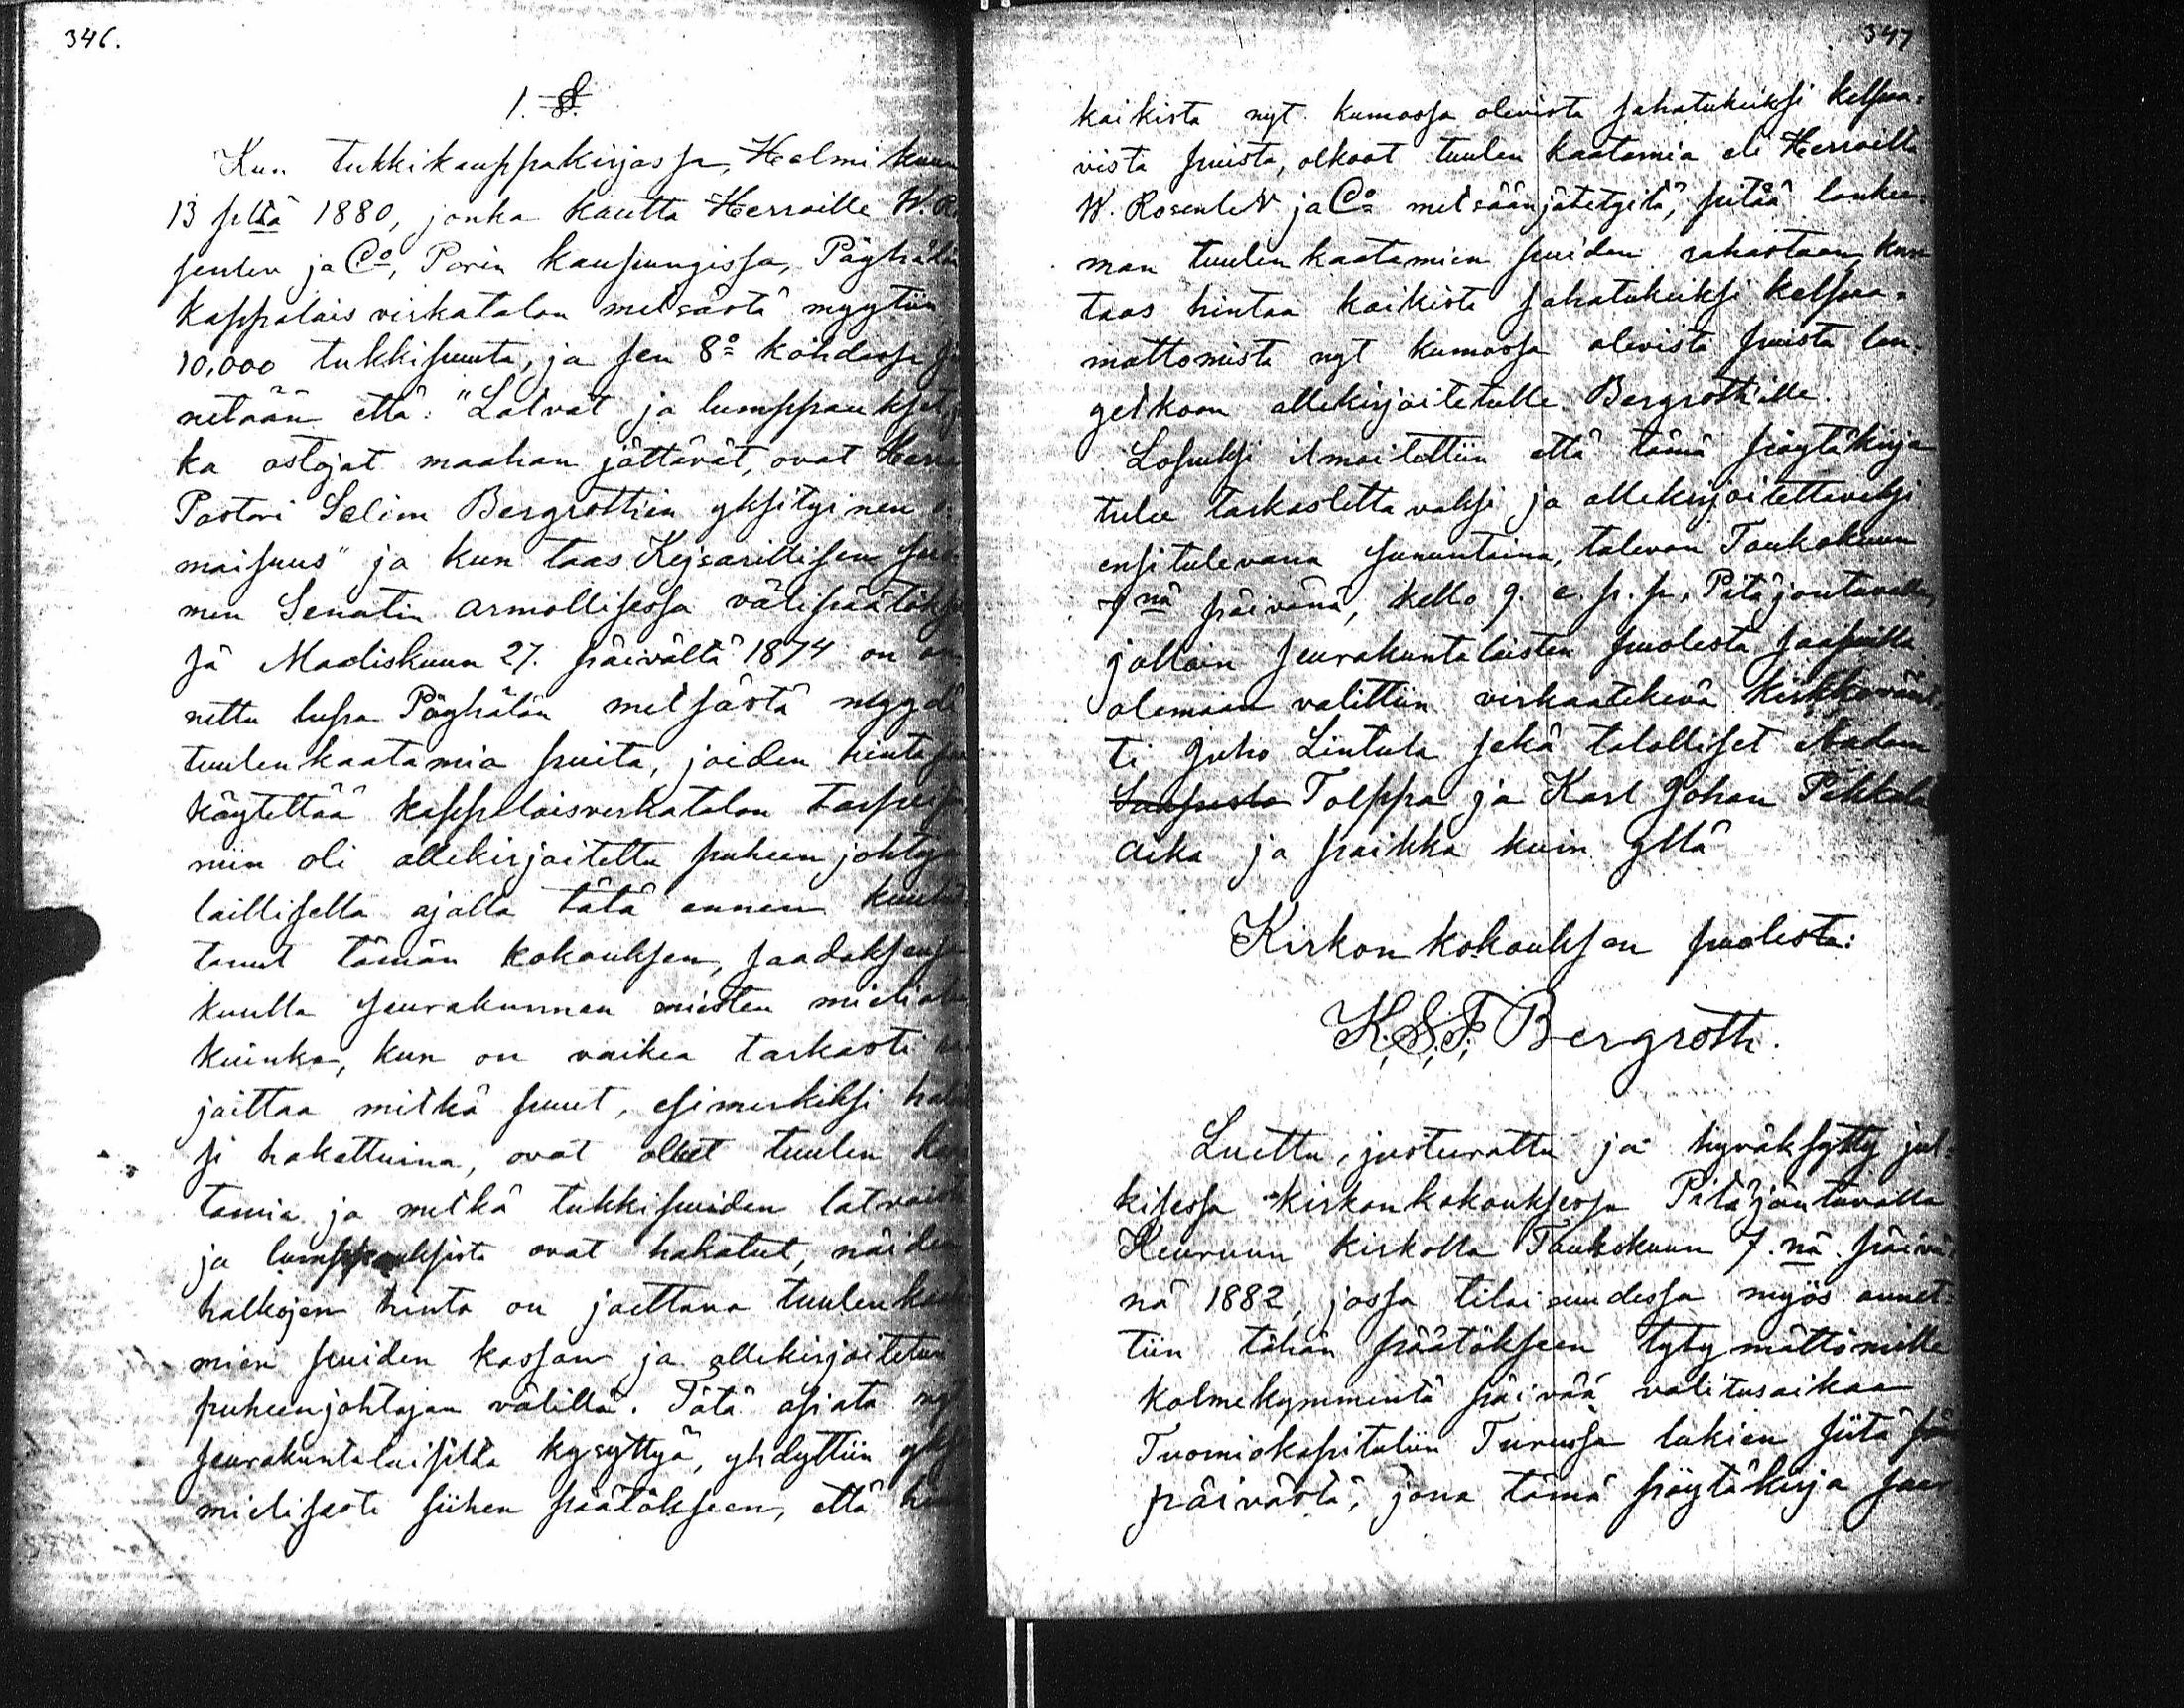 346.
1. §.
Kun tukkikauppakirjassa, Helmikuun
13 pltä 1880, jonka kautta Herroille W. Ro
senlew ja Co, Porin kaupungissa, Pöyhölän
kappalaisvirkatalon metsästä myytiin
10,000 tukkipuuta, ja sen 8o kohdassa
netään että: "Latvat ja lumppaukset,
ka ostajat maahan jättävät, ovat Herra
Pastori Selim Bergrothin yksityinen o
maisuus" ja kun taas Kejsarillisen Suo
men Senatin armollisessa välipäätökses
sä Maaliskuun 27. päivältä 1874 on an
nettu lupa Pöyhölän metsästä myydä
tuulenkaatamia puita, joiden hinta
käytettää kappalaisvirkatalon tarpeisi
niin oli allekirjoitettu puheenjohtaja
laillisella ajalla tätä ennen kuulut
tanut tämän kokouksen, saadaksensa
kuulla seurakunnan miesten mieliala
kuinka, kun on vaikea tarkasti
joittaa mitkä puut, esimerkiksi halo
si hakattuina, ovat olleet tuulen kaa
tamia ja mitkä tukkipuiden latvoista
ja lumppauksista ovat hakatut, näiden
halkojen hinta on jaettava tuulenkaata
mien puiden kassan ja allekirjoitetun
puheenjohtajan välillä. Tätä asiata nyt
seurakuntalaisilta kysyttyä, yhdyttiin yksi
mielisesti siihen päätökseen, että
347
kaikista nyt kumossa olevista sahatukeiksi kelpaa-
vista puista, olkoot tuulen kaatamia eli Herroilta
W. Rosenlew ja Co metsäänjätetyitä, pitää lankee-
man tuulenkaatamien puiden rahastoon, kun
taas hintaa kaikista sahatukeiksi kelpaa-
mattomista nyt kumossa olevista puista lan-
getkoon allekirjoitetulle Bergrothille.
Lopuksi ilmoitettiin että tämä pöytäkirja
tulee tarkastettavaksi ja allekirjoitettavaksi
ensitulevana sununtaina, tulevan Toukokuun
7nä päivänä, kello 9. e. p. p. Pitäjäntuvalla,
jolloin seurakuntalaisten puolesta saapuilla
olemaan valittiin virkaatekevä kirkkovär-
ti Juho Lintula sekä talolliset Aadam
Tolppa ja Karl Johan Pihkala
Aika ja paikka kuin yllä
Kirkonkokouksen puolesta:
K. S. F. Bergroth.
Luettu, justeerattu ja hyväksytty jul-
kisessa kirkonkokouksessa Pitäjäntuvalla
Keuruun kirkolla Toukokuun 7.nä päivä-
nä 1882, jossa tilaisuudessa myös annet-
tiin tähän päätökseen tytymättömille
kolmekymmentä päivää valitusaikaa
Tuomiokapituliin Turussa lukien siitä
päivästä, jona tämä pöytäkirja saa